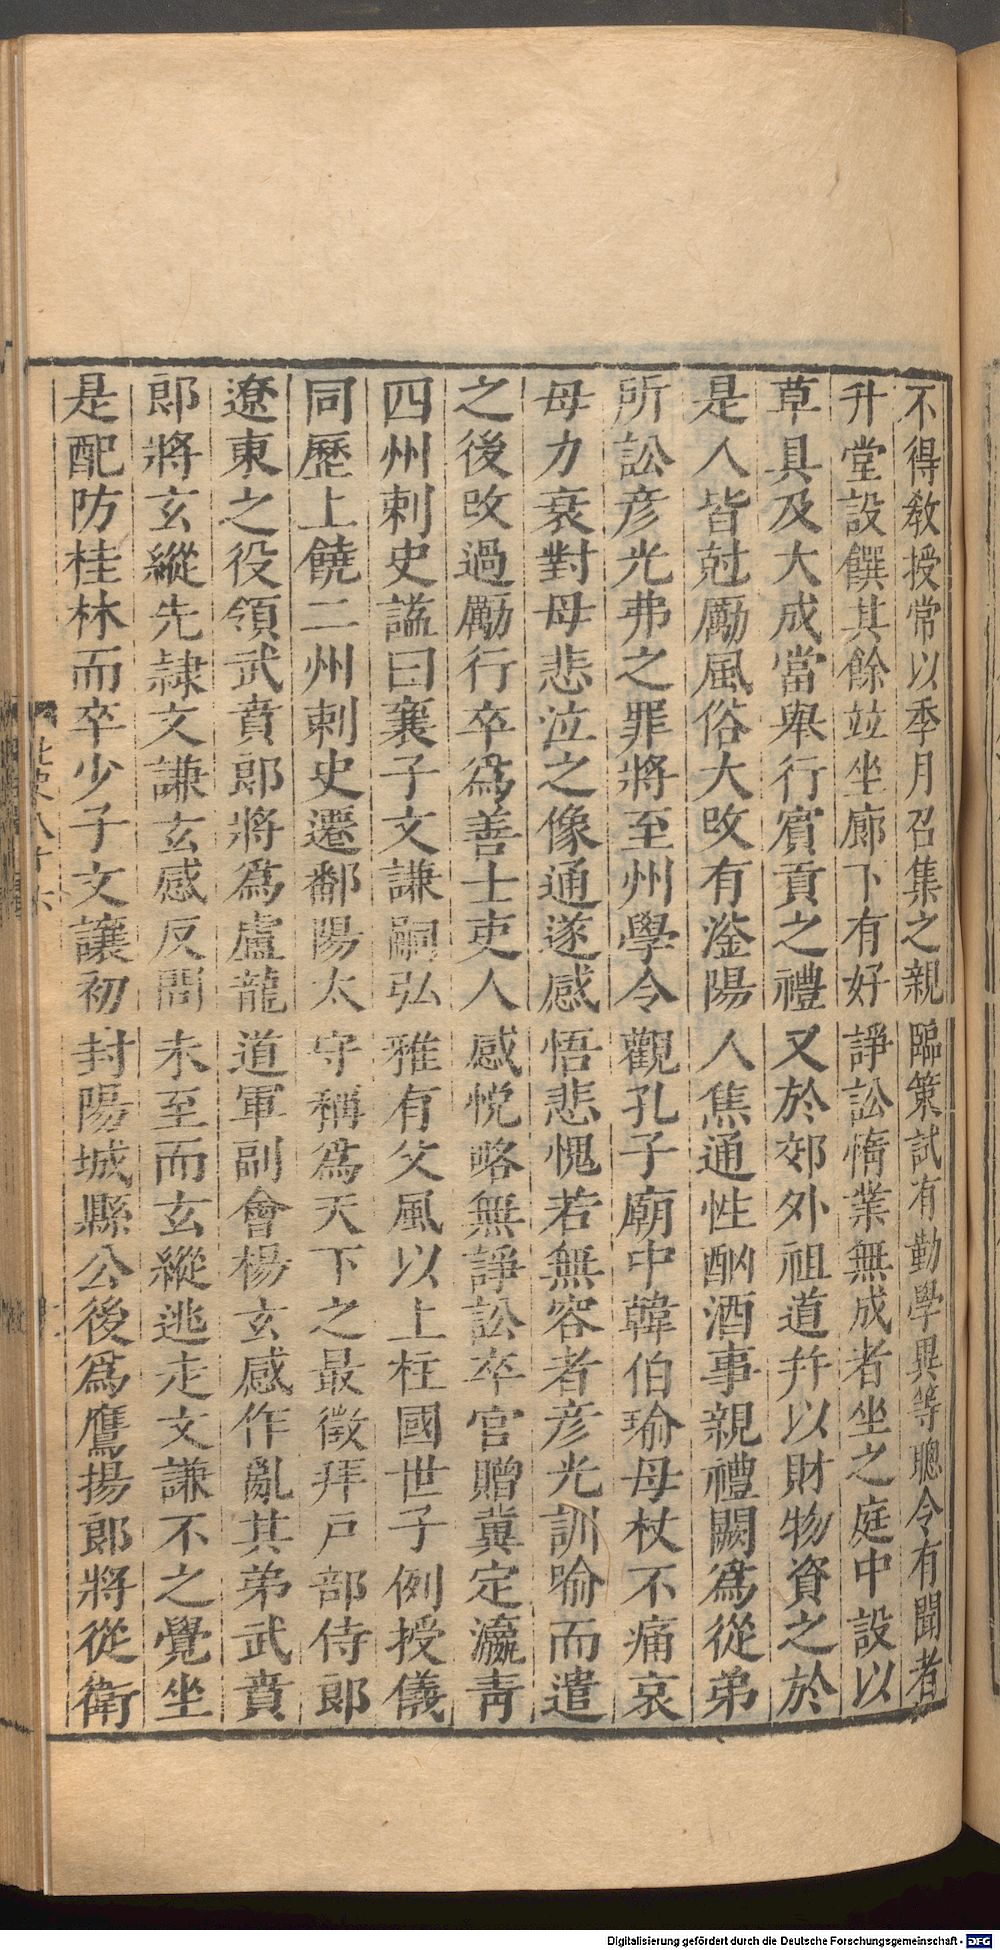 不得教授常以季月召集之親臨策試有勤學異等聰令有聞者
升堂設饌其餘竝坐廊下有好諍訟惰業無成者坐之庭中設以
草具及大成當舉行賓貢之禮又於郊外祖道幷以財物資之於
是人皆尅勵風俗大改有滏陽人焦通性酗酒事親禮闕爲從弟
所訟彦光弗之罪將至州學令觀孔子廟中韓伯瑜母杖不痛哀
母力衰對母悲泣之像通遂感悟悲愧若無容者彦光訓喻而遣
之後改過勵行卒爲善士吏人感悅略無諍訟卒官贈冀定瀛青
四州刺史謚曰襄子文謙嗣弘雅有父風以上柱國世子例授儀
同歷上饒二州刺史遷鄱陽太守稱爲天下之最徵拜戶部侍郎
遼東之役領武賁郎將爲盧龍道軍副會楊玄感作亂其弟武賁
郎將玄縱先隷文謙玄感反問未至而玄縱逃走文謙不之覺坐
是配防桂林而卒少子文讓初封陽城縣公後爲鷹揚郎將從衛
北史八十六
Digitalisierung gefördert durch die Deutsche Forschungsgemeinschaft - DFG